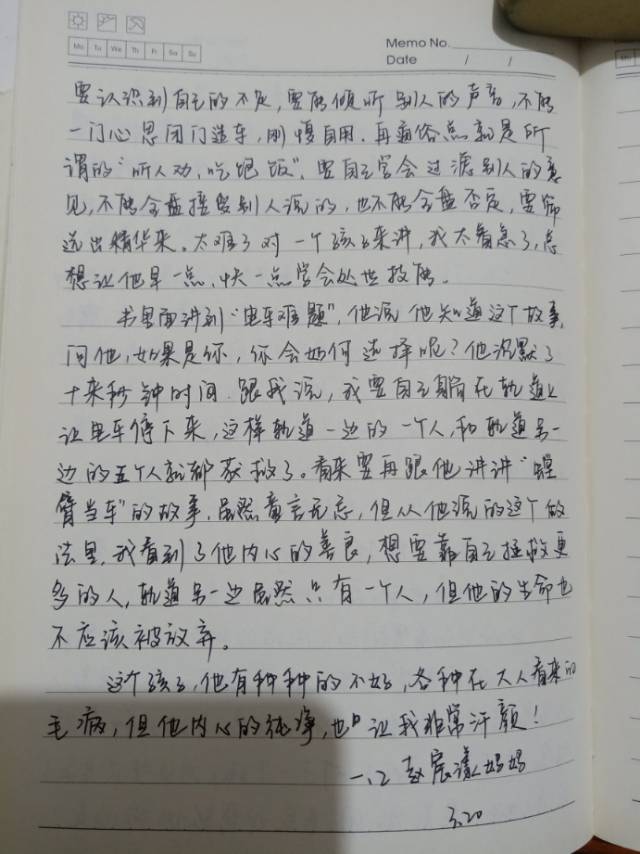 Mo Tu We Th Fr Sa Su
Memo No.
Date / /
要认识到自己的不足,要能倾听别人的声音,不能
一门心思闭门造车,刚愎自用。再通俗点就是所
谓的"听人劝,吃饱饭"。要自己学会过滤别人的意
见,不能全盘接受别人说的,也不能全盘否定,要筛
选出精华来。太难了对一个孩子来讲,我太着急了,总
想让他早一点,快一点学会处世技能。
书里面讲到"电车难题",他说他知道这个故事,
问他,如果是你,你会如何选择呢?他沉默了
十来秒钟时间,跟我说,我要自己躺在轨道上
让电车停下来,这样轨道一边的一个人,和轨道另一
边的五个人就都获救了。看来要再跟他讲讲"螳
臂当车"的故事。虽然童言无忌,但从他说的这个做
法里,我看到了他内心的善良,想要靠自己拯救更
多的人,轨道另一边虽然只有一个人,但他的生命也
不应该被放弃。
这个孩子,他有种种的不好,各种在大人看来的
毛病,但他内心的纯净,也让我非常汗颜!
一.12 赵宸漾妈妈
3.20